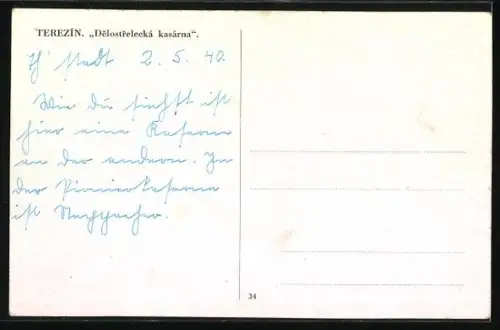 TEREZÍN. „Dělostřelecká kasárna“.
Th' stadt 2.5.40.
Wie du siehst ist
hier eine Kaserne
an der andern. In
der Pionierkaserne
ist
34